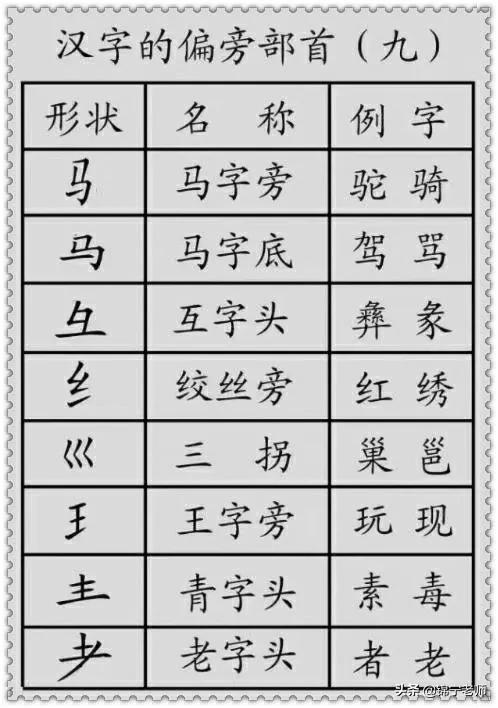 汉字的偏旁部首（九）
形状 名 称 例 字
马 马字旁 驼 骑
马 马字底 驾 骂
彑 互字头 彝 彖
纟 绞丝旁 红 绣
巛 三 拐 巢 邕
王 王字旁 玩 现
龶 青字头 素 毒
耂 老字头 者 老
头条@锦宁老师